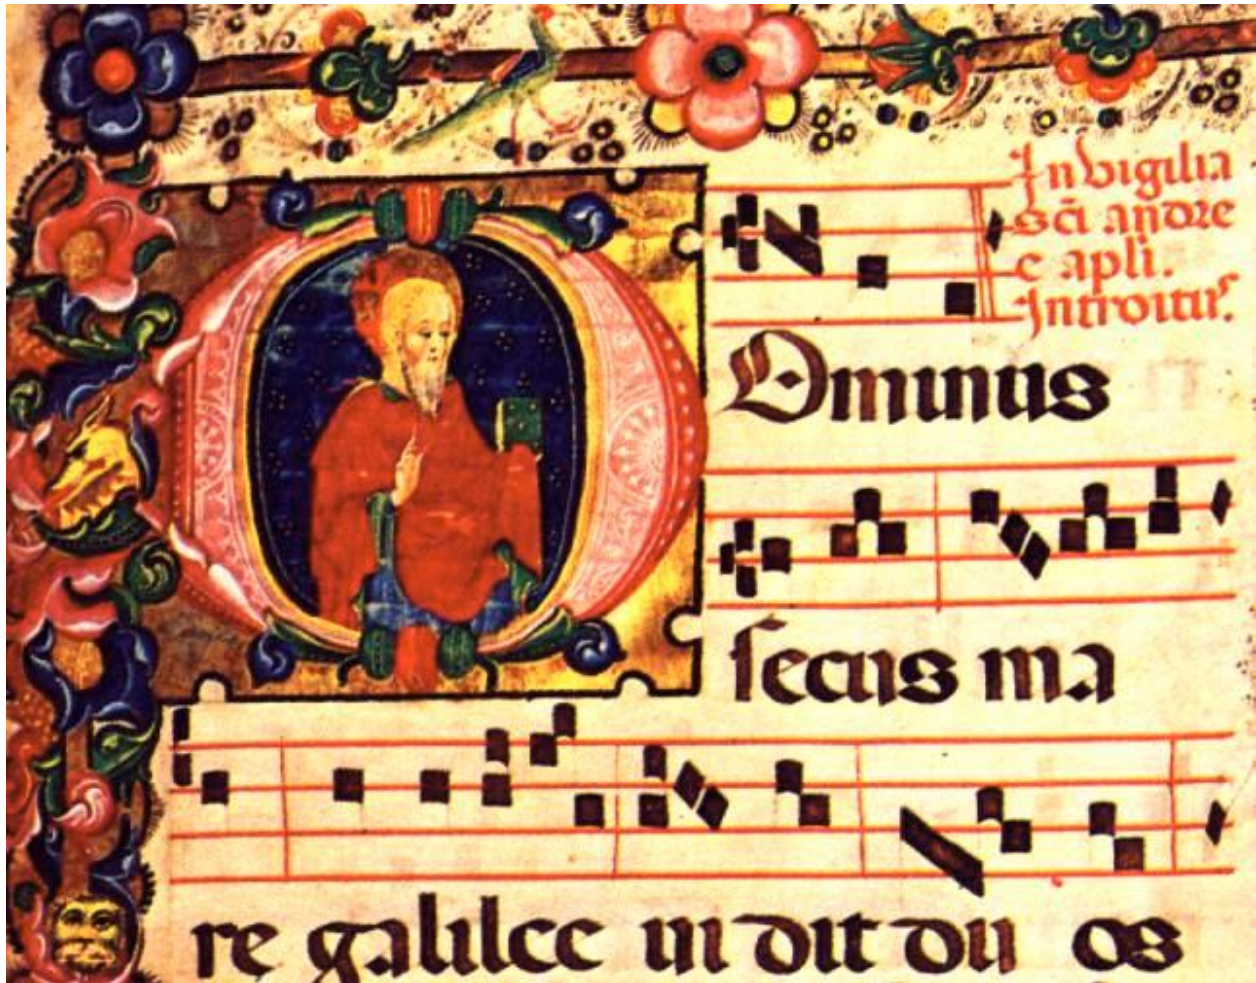 In vigilia
sc̄i andre
e apl̄i.
Introitus.
Ominus
secus ma
re galilee ui dit du os